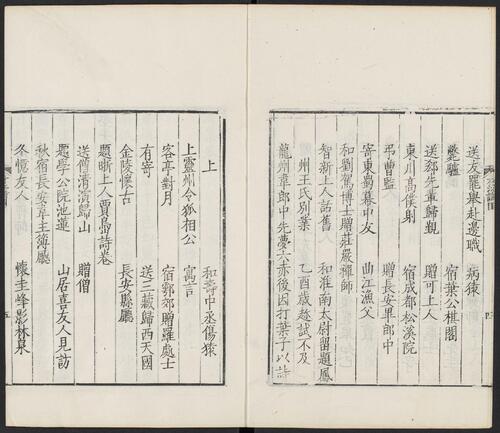 送友罷舉赴邊職 病猿
甓驢 宿葉公棋閣
送鄭先輩歸覲 贈可上人
東川高僕射 宿成都松溪院
弔曹監 贈長安畢郎中
寄東蜀幕中友 曲江漁父
和劉篤博士贈莊嚴禪師
智新上人話舊 和淮南太尉留題鳳
州王氏別業 乙酉歲趂試不及
龍州韋郎中先夢六赤後因打葉子以詩
上 和壽中丞傷猿
上靈州令狐相公 寓言
客亭對月 宿鄠郊贈羅處士
有寄 送三藏歸西天國
金陵懷古 長安縣廳
題晰上人賈島詩卷
送僧清演歸山 贈僧
題學公院池蓮 山居喜友人見訪
秋宿長安韋主簿廳
冬憶友人 懷圭峰影林泉
五